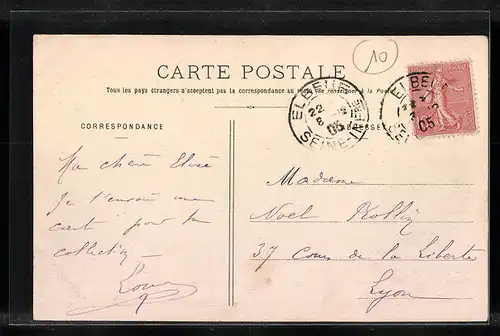 10
CARTE POSTALE
Tous les pays étrangers n'acceptent pas la correspondance au recto (se renseigner à la Poste)
ELBEUF
22
6
05
SEINE-INFRE
ELBEUF
05
CORRESPONDANCE
ADRESSE
Ma chère Élise
Je t'envoie une
carte pour ta
collection
Louis
Madame
Noël
37 Cours de la Liberté
Lyon